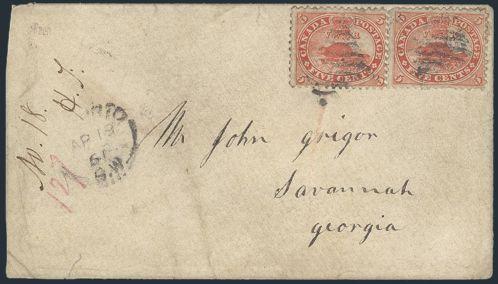 CANADA POSTAGE
5 5
FIVE CENTS
5 5
CANADA POSTAGE
5 5
FIVE CENTS
5 5
No. 18.
127
AP 18
61
Mr John Grigor
Savannah
georgia